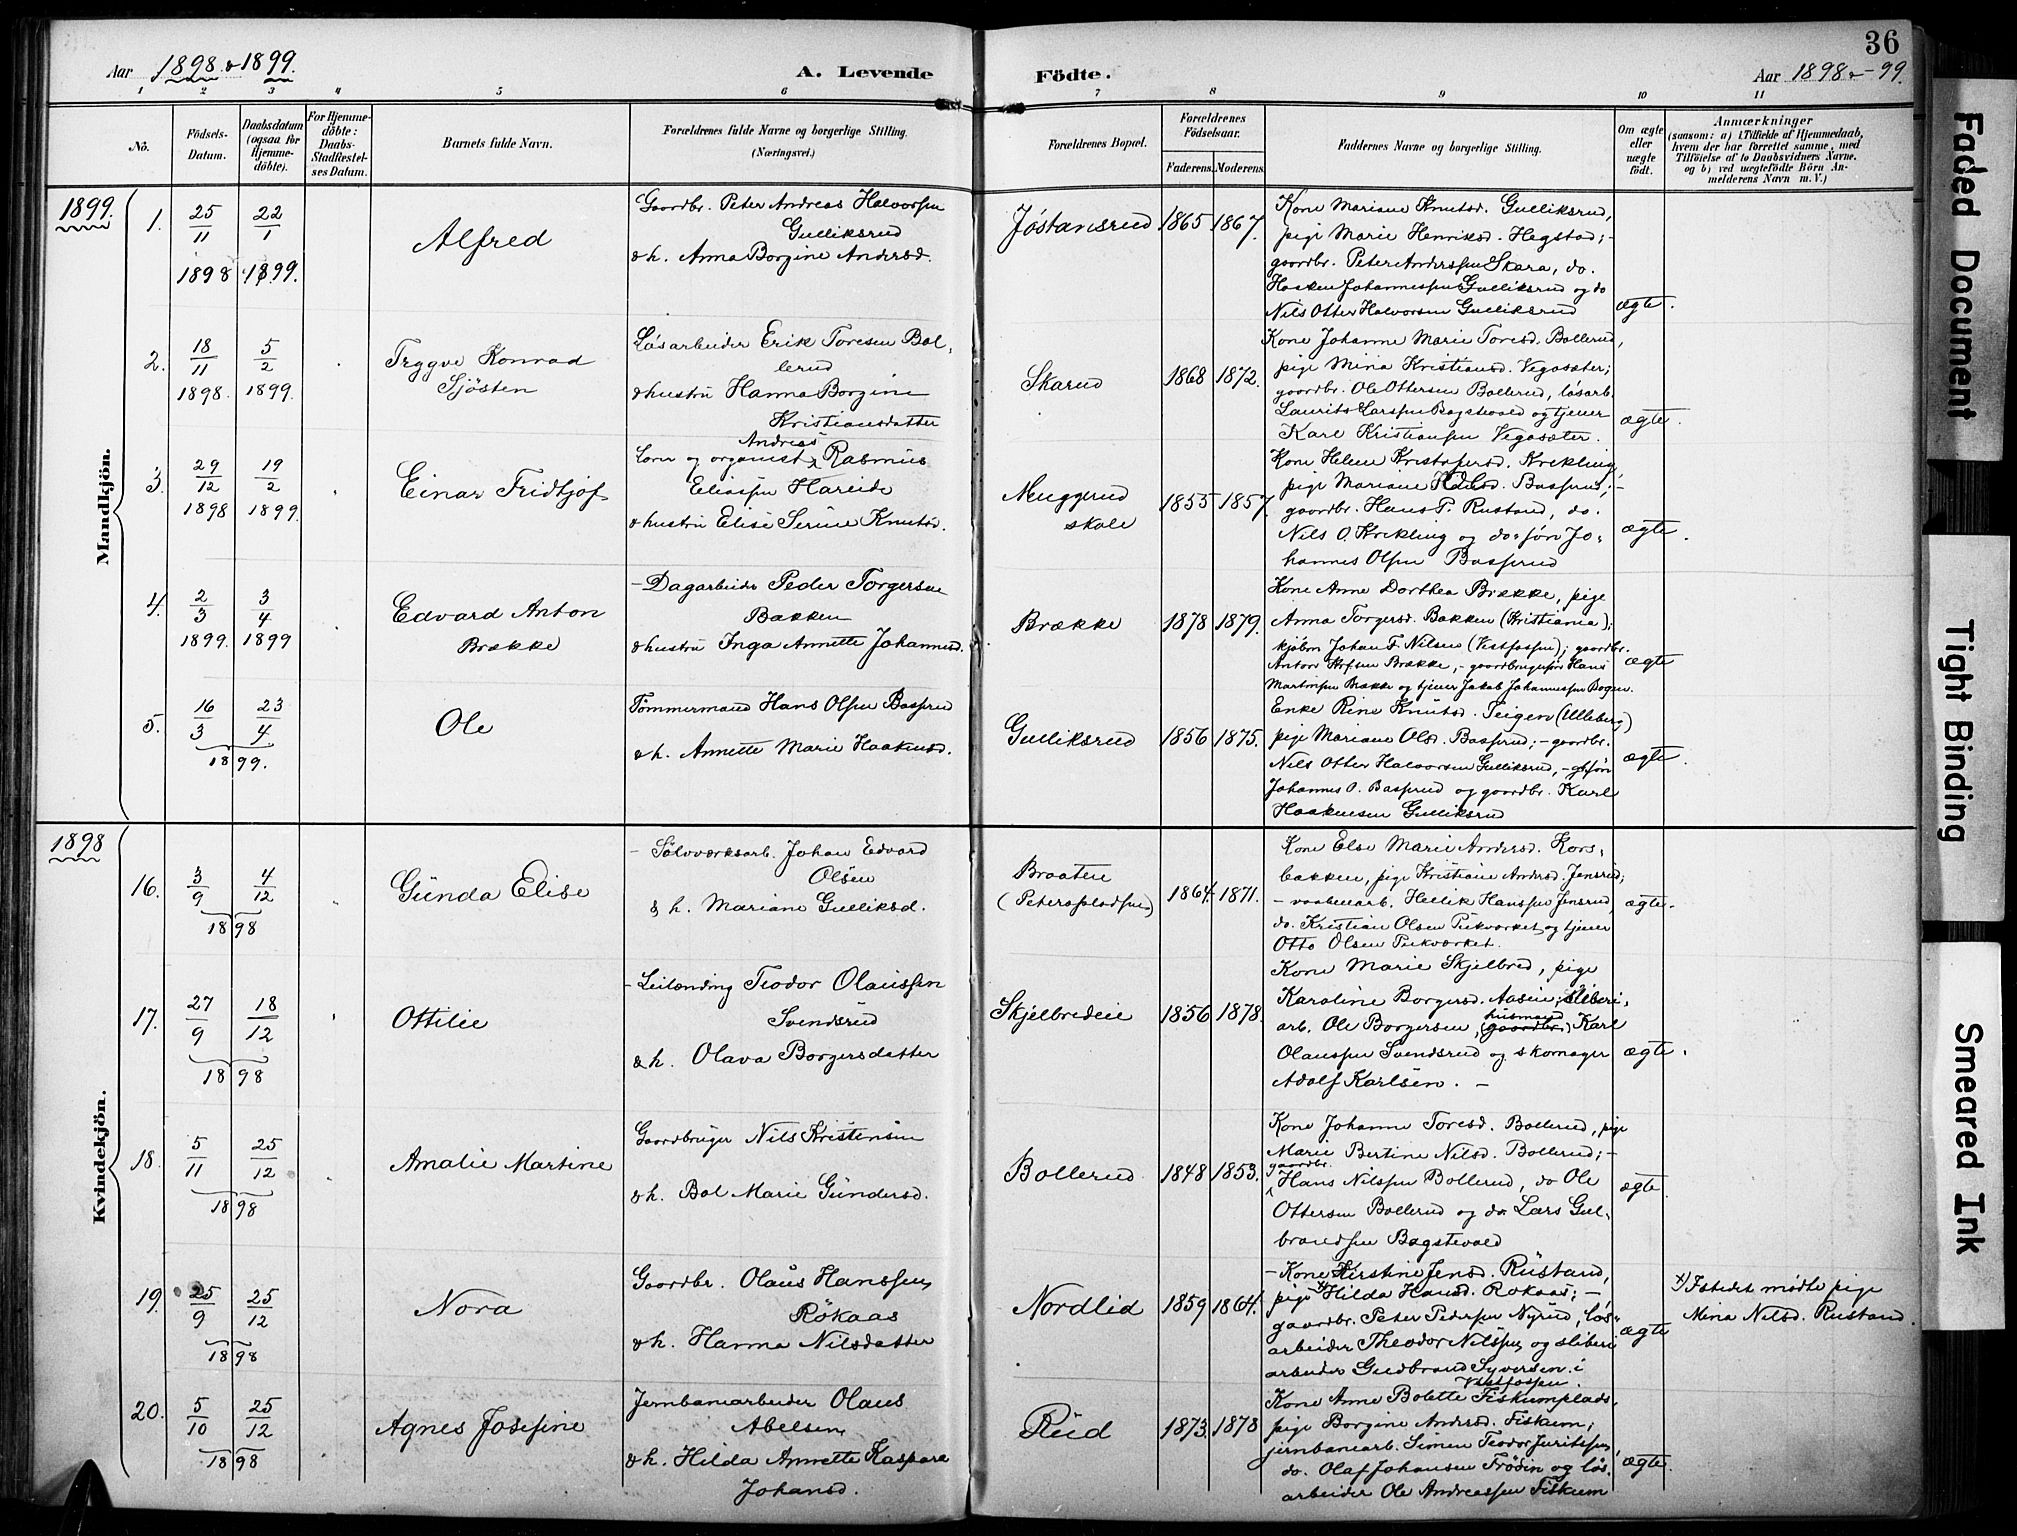 36
Aar 1898 & 1899.
A. Levende Födte.
Aar 1898 & -99.
1 2 3 4 5 6 7 8 9 10 11
No.
Födsels-Datum.
Daabsdatum (ogsaa for Hjemmedöbte).
For Hjemmedöbte: Daabs-Stadfæstelses Datum.
Barnets fulde Navn.
Forældrenes fulde Navne og borgerlige Stilling. (Næringsvei.)
Forældrenes Bopæl.
Forældrenes Födselsaar.
Faderens. Moderens.
Faddernes Navne og borgerlige Stilling.
Om ægte eller uægte födt.
Anmærkninger
(saasom: a) i Tilfælde af Hjemmedaab, hvem der har forrettet samme, med Tilföielse af to Daabsvidners Navne. og b) ved uægtefödte Börn Anmelderens Navn m. V.)
Mandkjön.
1899.
1. 25/11 1898 22/1 1899.
Alfred
Gaardbr. Peter Andreas Halvorsen
Gulliksrud
& h. Anna Borgine Andersd.
Jøstansrud
1865 1867.
Kone Mariane Knutsd. Gulliksrud,
pige Marie Henriksd. Hegstad; -
gaardbr. Peter Anderssen Skara, do.
Haaken Johannessen Gulliksrud og do
Nils Otter Halvorsen Gulliksrud
ægte.
2. 18/11 1898. 5/2 1899.
Trygve Konrad
Sjösten
Løsarbeider Erik Toresen Bol-
lerud
& hustru Hanna Borgine
Kristiansdatter
Skarud
1868 1872.
Kone Johanne Marie Toresd. Bollerud,
pige Mina Kristiansd. Vegosæter;
gaardbr. Ole Ottersen Bollerud, løsarb.
Laurits Larssen Bagstevold og tjener
Karl Kristiansen Vegosæter.
ægte.
3. 29/12 1898 19/2 1899.
Einar Fridtjof
Andreas
Lærer og organist Rasmus
Eliassen Hareide
& hustru Elise Serine Knutsd.
Muggerud
skole
1855 1857.
Kone Helene Kristofersd. Krekling,
pige Mariane Olsd. Basserud; -
gaardbr. Hans P. Rustand, do.
Nils O. Krekling og do=søn Jo-
hannes Olsen Basserud
ægte.
4. 2/3 1899. 3/4 1899
Edvard Anton
Brække
- Dagarbeider Peder Torgersen
Bakken
& hustru Inga Annette Johannesd.
Brække
1878 1879.
Kone Anne Dorthea Brække, pige
Anna Torgersd. Bakken (Kristiania);
kjøbm Johan F Nilsen (Vestfossen); gaardbr.
Brække, - gaardbrugersøn Hans
Martinsen Brække og tjener Jakob Johannessen Bogen.
ægte
5. 16/3 23/4 1899.
Ole
Tømmermand Hans Olsen Basserud
& h. Annette Marie Haakensd.
Gulliksrud
1856 1875.
Enke Rine Knutsd. Teigen (Ulleberg)
pige Mariane Olsd. Basserud; - gaardbr.
Nils Otter Halvorsen Gulliksrud, - gbrsøn
Johannes O. Basserud og gaardbr. Karl
Haakensen Gulliksrud
ægte.
Kvindekjön.
1898
16. 3/9 4/12 1898
Gunda Elise
- Sølvverksarb. Johan Edvard
Olsen
& h. Mariane Gulliksd.
Braaten
(Peterspladsen)
1864 1871.
Kone Else Marie Andersd. Kors-
bakken, pige Kristiane Andersd. Jensrud;
- vaabenarb. Hellik Hanssen Jensrud,
do. Kristian Olsen Pukværket og tjener
Otto Olsen Pukværket.
ægte.
17. 27/9 18/12 1898
Ottilie
- Leilænding Teodor Olaussen
Svendsrud
& h. Olava Borgersdatter
Skjelbredeie
1856 1878.
Kone Marie Skjelbred, pige
Karoline Borgersd. Aasen; sliberi-
arb. Ole Borgersen, husmand (gaardbr.) Karl
Olaussen Svendsrud og skomager
Adolf Karlsen. -
ægte.
18. 5/11 25/12 1898
Amalie Martine
Gaardbruger Nils Kristensen
& h. Bol Marie Gundersd.
Bollerud
1848 1853.
Kone Johanne Toresd. Bollerud, pige
Marie Bertine Nilsd. Bollerud; -
gaardbr.
Hans Nilssen Bollerud, do Ole
Ottersen Bollerud og do Lars Gul-
brandsen Bagstevold
ægte.
19. 25/9 25/12 1898
Nora
Gaardbr. Olaus Hanssen
Rökaas
& h. Hanna Nilsdatter
Nordlid
1859 1864.
- Kone Kerstine Jensd. Rustand,
pige x) Hilda Hansd. Rokaas; -
gaardbr. Peter Pedersen Nyrud, løs-
arbeider Theodor Nilssen og sliberi
arbeider Gudbrand Syversen i
Vestfossen.
ægte
x) Istedet mødte pige
Mina Nilsd. Rustand.
20. 5/10 25/12 1898
Agnes Josefine
Jernbanearbeider Olaus
Abelsen
& h. Hilda Annette Kaspara
Johansd.
Rud
1873. 1878
Kone Anne Bolette Fiskumplads,
pige Borgine Andersd. Fiskum;
jernbanearb. Simen Teodor
do. Olaf Johansen Frödin og løs-
arbeider Ole Andreassen Fiskum
ægte.
Faded Document
Tight Binding
Smeared Ink